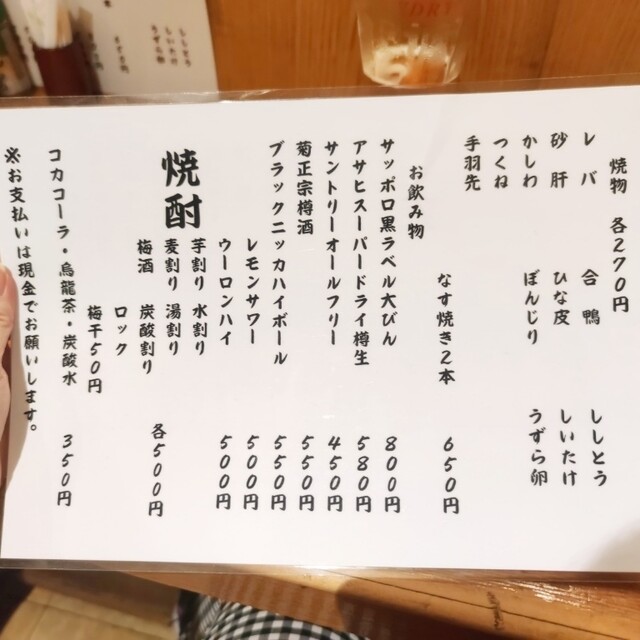 焼物 各270円
レバ 合鴨 ししとう
砂肝 ひな皮 しいたけ
かしわ ぼんじり うずら卵
つくね
手羽先
なす焼き2本 650円
お飲み物
サッポロ黒ラベル大びん 800円
アサヒスーパードライ樽生 580円
サントリーオールフリー 450円
菊正宗樽酒 550円
ブラックニッカハイボール 550円
レモンサワー 500円
ウーロンハイ 500円
焼酎 芋割り 水割り
麦割り 湯割り
梅酒 炭酸割り 各500円
ロック
梅干50円
コカコーラ・烏龍茶・炭酸水 350円
※お支払いは現金でお願いします。